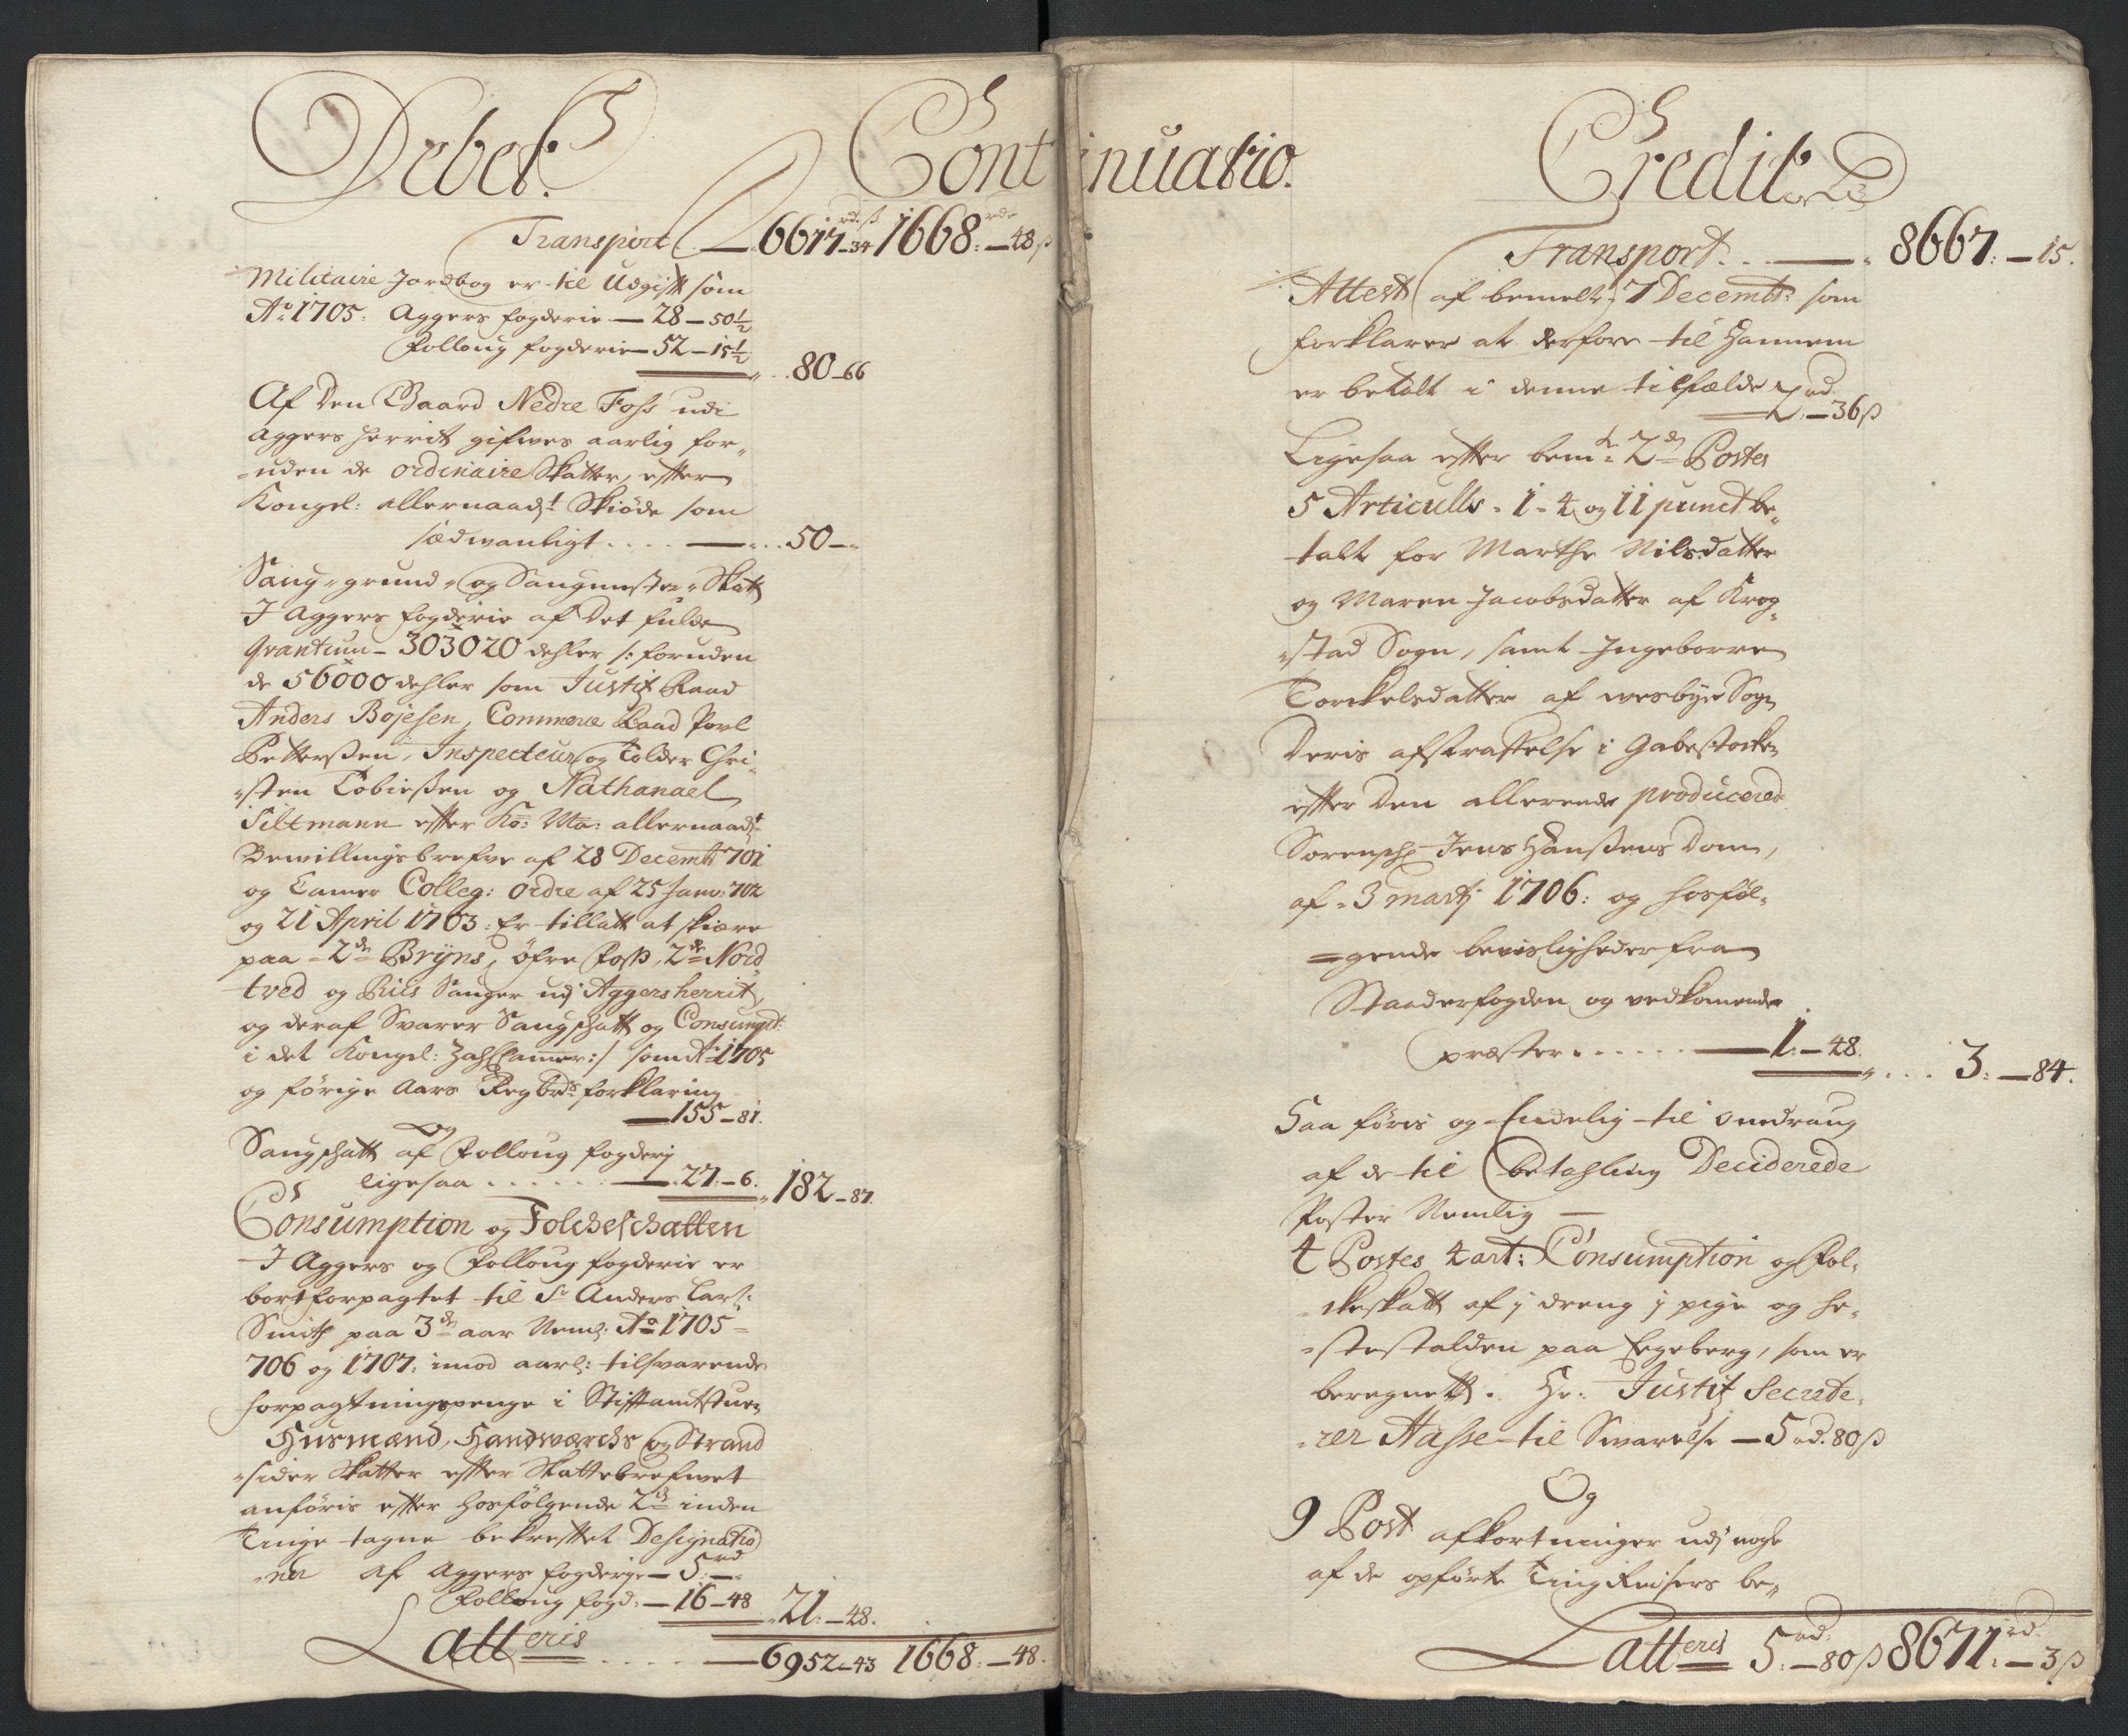 Debet.
Continuatio.
Transport — 6617 rd – 34 ß 1668: rdr – 48 ß
Militaire Jordbog er til Udgift som
Aº 1705. Aggers fogderie — 28 – 50½
Folloug fogderie — 52 – 15½
80 – 66
Af Den Gaard Nedre Foss udi
Aggers herrit gifwes aarlig for„
„uden de ordinaire Skatter, efter
Kongel: allernaadt Skiøde som
sædwanligt . . . . — . . 50 –
Saug„grund„ og Saugmester„Skatt
I Aggers fogderie af Det fulde
Qvantum – 303020 dehler /: foruden
de 56000 dehler som Justitz Raad
Anders Bojesen, Commerce Raad Povl
Petterssen, Inspecteur og Tolder Chri„
„sten Tobiessen og Nathanael
Siltmann efter Ko: Ma: allernaadt
Bewillingsbrefve af 28 Decembr 701
og Camer Colleg: ordre af 25 Janv: 702
og 21 April 1703: Er tillatt at skiære
paa 2de Bryns, öfre Foss, 2de Nord
tved og Riis Sauger udj Aggersherrit,
og deraf Svarer Saugschatt og Consumpt:
i det Kongel: Zahl Camer :/ som Aº 1705
og förige Aars Reg brds forklaring
— 155 – 81.
Og
Saugschatt af Folloug fogderj
ligesaa . . . . . . — 27: – 6.
182 – 87.
Consumption og Folcheschatten
I Aggers og Folloug fogderie er
bortforpagtet til Sr Anders Lars:
Smith paa 3de aar Neml: Aº 1705 –
706 og 1707: imod aarl: tilsvarende
forpagtningspenge i Stiftamtstuen
Husmænd, Handwærchs og Strand
„sider Skatter efter Skattebrefwet
anföris efter hosfölgende 2de inden
Tinge tagne bekreftet Designatio
„ner af Aggers fogderje — 5 rd –
Folloug fogd: — 16 – 48
21: – 48.
Latteris . . . . — 6952 – 43 1668: – 48.
Credit
Transport . . . — 8667: – 15.
Attest af bemelte 7 Decembr: som
forklarer at derfore til Hannem
er betalt i denne tilfælde 2 rd. – 36 ß
Ligesaa efter bemte 2de Postes
5 Articulls 1 – 4 og 11 punct be„
talt for Marthe Nilsdatter
og Maren Jacobsdatter af Krog„
„stad Sogn, samt Ingeborre
Torckelsdatter af wesbye Sogn
Deris afstraffelse i Gabestocken
efter Den allerende producered
Sorensch: Jens Hanssens Dom,
af 3 martj 1706: og hosföl„
„gende bevisligheder fra
Staaderfogden og vedkomende
præster . . . . . . — 1: – 48.
3: – 84.
Saa föris og Endelig til omdraug
af de til betahling Deciderede
Poster Nemlig —
4 Postes 4 art: Consumption og Fol„
„ckeskatt af j dreng j pige og he„
„stestalden paa Egeberg, som er
beregnett. Hr. Justitz Secrete„
„rer Hasse til Swarelse — 5 rd. 80 ß
Og
9 Post afkortninger udj nogle
af de opförte Ting Reisers be„
Latteris 5: rd – 80 ß 8671: rd – 3 ß